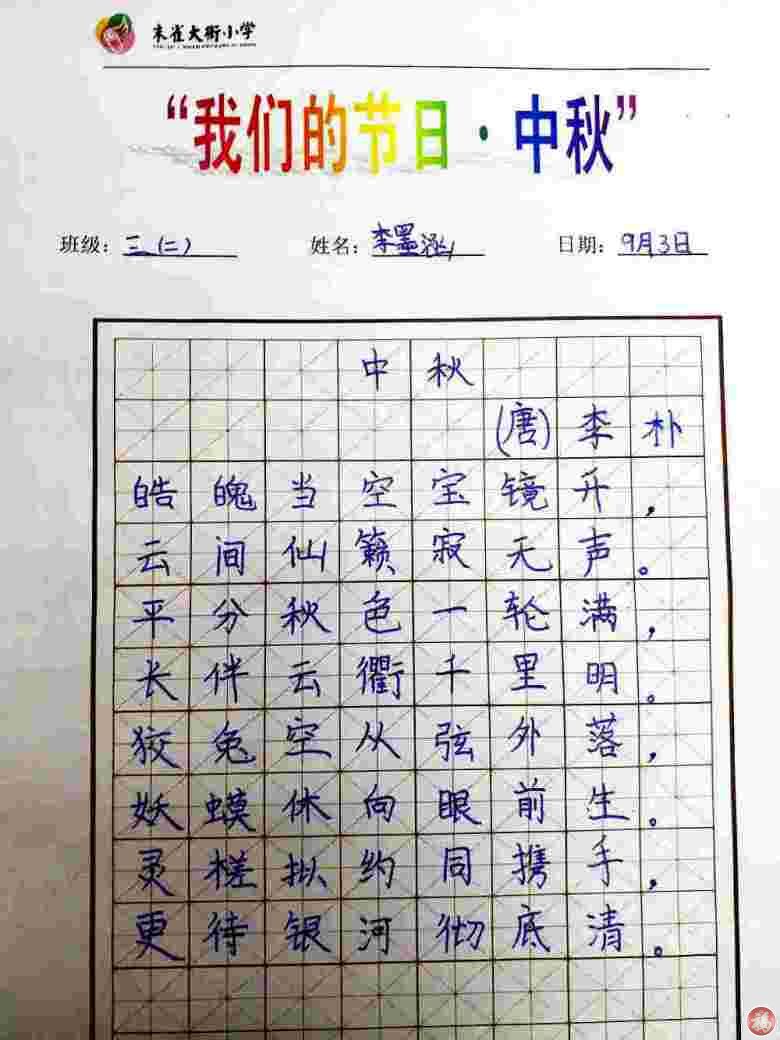 朱雀大街小学
“我们的节日·中秋”
班级：三（二） 姓名：李墨涵 日期：9月3日
中秋
(唐)李朴
皓魄当空宝镜升，
云间仙籁寂无声。
平分秋色一轮满，
长伴云衢千里明。
狡兔空从弦外落，
妖蟆休向眼前生。
灵槎拟约同携手，
更待银河彻底清。
福